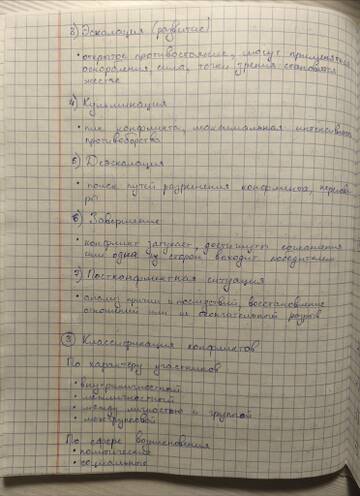 3) Эскалация (развитие)
• открытое противостояние, могут применяться
оскорбления, сила, точки зрения становятся
жестче
4) Кульминация
• пик конфликта, максимальная интенсивность
противоборства
5) Деэскалация
• поиск путей разрешения конфликта, перегово-
ры
6) Завершение
• конфликт затухает, достигнуты соглашения
или одна из сторон выходит победителем
7) Постконфликтная ситуация
• анализ причин и последствий, восстановление
отношений или их окончательный разрыв
③ Классификация конфликтов
По характеру участников
• внутриличностной
• межличностной
• между личностью и группой
• межгрупповой
По сфере возникновения
• политические
• социальные